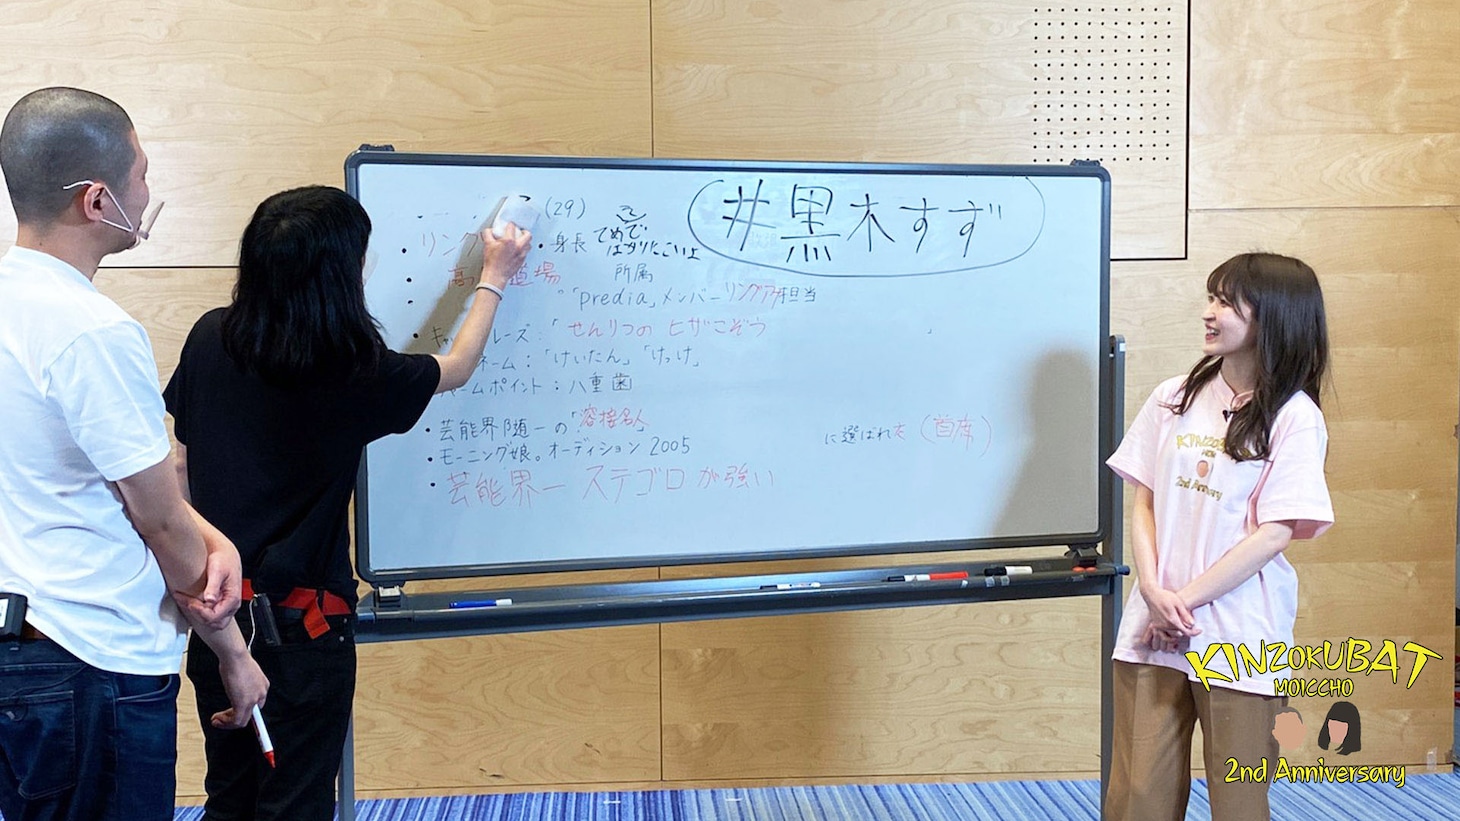 #黒木すず
(29)
・リング
・身長 てめでばかりにこいよ
道場 所属
「predia」メンバー リングアナ担当
レズ：「せんりつの ヒザこぞう
ネーム：「けいたん」「けっけ」
ームポイント：八重歯
・芸能界随一の「溶接名人」
・モーニング娘。オーディション 2005 に選ばれた（首席）
・芸能界一 ステゴロが強い
KINZOKUBAT
MOICCHO
2nd Anniversary
KINZOKUBAT